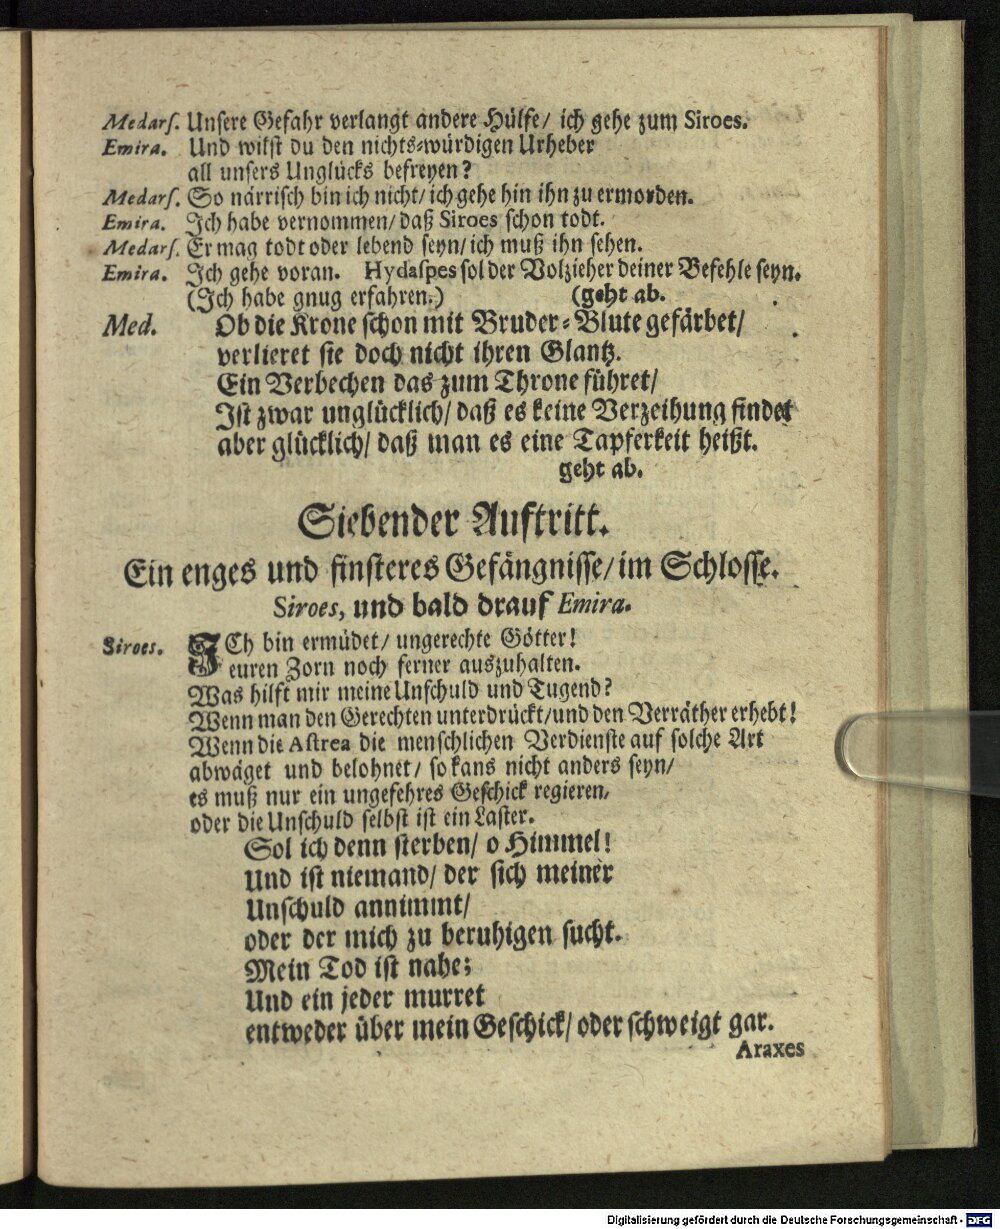 Medarſ. Unſere Gefahr verlangt andere Hülfe/ ich gehe zum Siroes.
Emira. Und wilſt du den nichts-würdigen Urheber
all unſers Unglücks befreyen?
Medarſ. So närriſch bin ich nicht/ ich gehe hin ihn zu ermorden.
Emira. Ich habe vernommen/ daß Siroes ſchon todt.
Medarſ. Er mag todt oder lebend ſeyn/ ich muß ihn ſehen.
Emira. Ich gehe voran. Hydaſpes ſol der Volzieher deiner Befehle ſeyn.
(Ich habe gnug erfahren.) (geht ab.
Med. Ob die Krone ſchon mit Bruder-Blute gefärbet/
verlieret ſie doch nicht ihren Glantz.
Ein Verbechen das zum Throne führet/
Iſt zwar unglücklich/ daß es keine Verzeihung findet
aber glücklich/ daß man es eine Tapferkeit heißt.
geht ab.
Siebender Auftritt.
Ein enges und finſteres Gefängniſſe/ im Schloſſe.
Siroes, und bald drauf Emira.
Siroes. ICh bin ermüdet/ ungerechte Götter!
euren Zorn noch ferner auszuhalten.
Was hilft mir meine Unſchuld und Tugend?
Wenn man den Gerechten unterdrückt/ und den Verräther erhebt!
Wenn die Aſtrea die menſchlichen Verdienſte auf ſolche Art
abwäget und belohnet/ ſo kans nicht anders ſeyn/
es muß nur ein ungefehres Geſchick regieren/
oder die Unſchuld ſelbſt iſt ein Laſter.
Sol ich denn ſterben/ o Himmel!
Und iſt niemand/ der ſich meiner
Unſchuld annimmt/
oder der mich zu beruhigen ſucht.
Mein Tod iſt nahe;
Und ein jeder murret
entweder über mein Geſchick/ oder ſchweigt gar.
Araxes
Digitalisierung gefördert durch die Deutsche Forschungsgemeinschaft - DFG